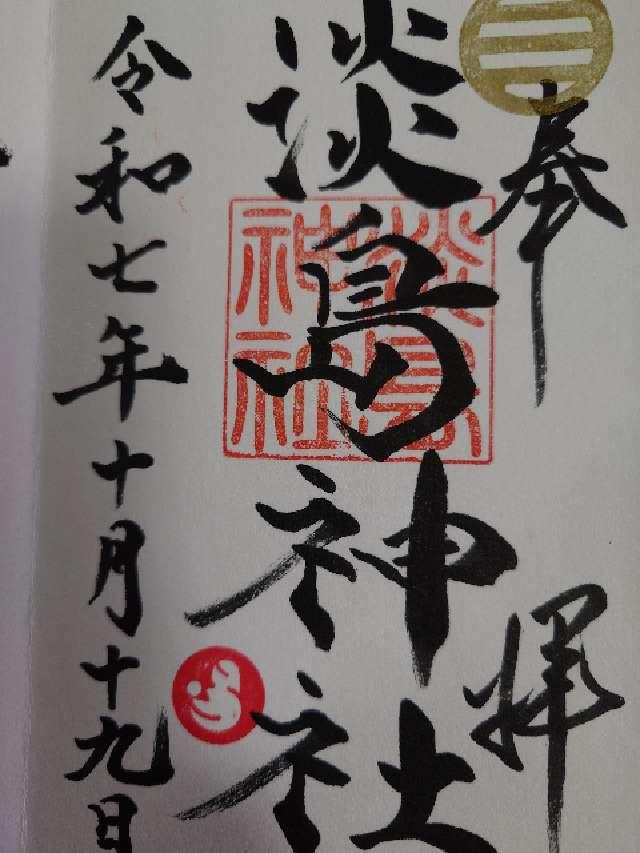 奉拝
淡島神社
淡島神社
令和七年十月十九日